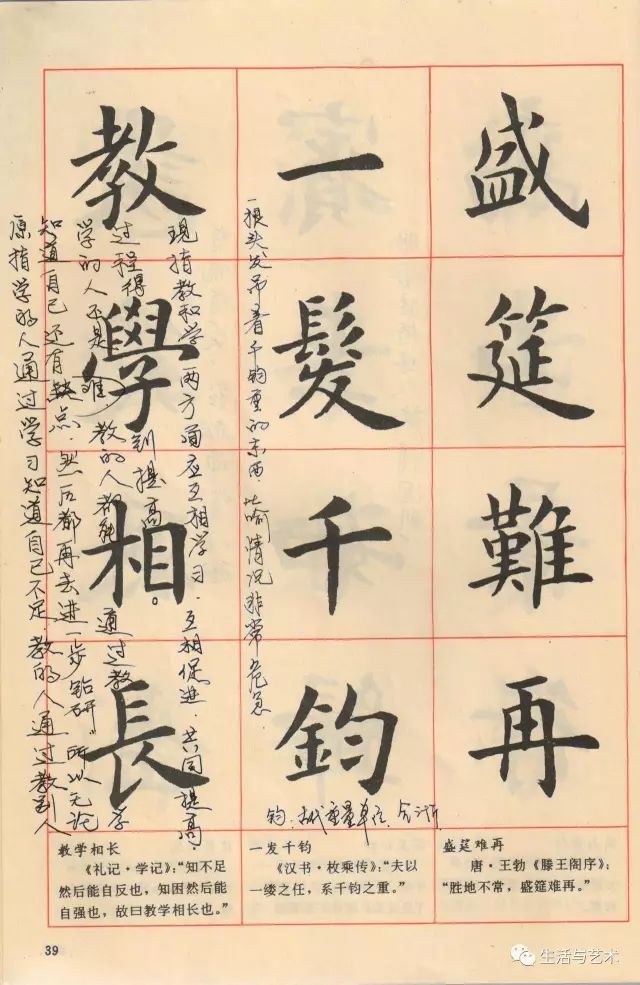 盛筵難再
一髮千鈞
教學相長
一根头发吊着千钧重的东西.比喻情况非常危急.
原指学的人通过学习知道自己不足.教的人通过教
知道自己还有缺点.然后都再去进一步钻研.所以无论
学的人还是教的人都能通过教学
过程得到提高。
现指教和学两方面应互相学习.互相促进.共同提高.
钧:古代重量单位.合
教学相长
《礼记·学记》:“知不足
然后能自反也,知困然后能
自强也,故曰教学相长也。”
一发千钧
《汉书·枚乘传》:“夫以
一缕之任,系千钧之重。”
盛筵难再
唐·王勃《滕王阁序》:
“胜地不常,盛筵难再。”
39
生活与艺术